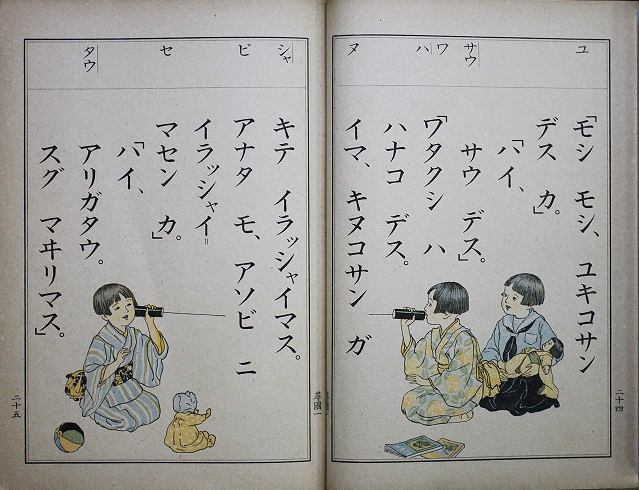 ユ
サウ
ワ
ハ
ヌ
「モシ モシ、 ユキコサン
デス カ。」
「ハイ、
サウ デス。」
「ワタクシ ハ
ハナコ デス。
イマ、 キヌコサン ガ
二十四
尋國一
シャ
ビ
セ
タウ
キテ イラッシャイマス。
アナタ モ、 アソビ ニ
イラッシャイ゠
マセン カ。」
「ハイ、
アリガタウ。
スグ マヰリマス。」
二十五